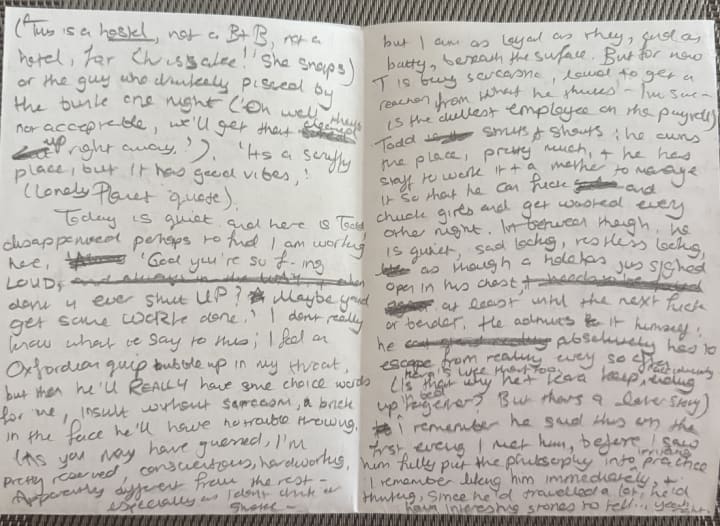 (This is a hostel, not a B+B, not a
hotel, for Chrissake!' She snaps)
or the guy who drunkenly pissed by
the bunk one night ('Oh well, that's
not acceptable, we'll get that cleaned
up right away.'). 'Its a scruffy
place, but it has good vibes,'
(Lonely Planet quote).
Today is quiet and here is Todd,
disappointed perhaps to find I am working
here. 'God you're so f-ing
LOUD, and always in the way,
don't u ever shut UP? Maybe you'd
get some WORK done.' I dont really
know what to say to this; I feel an
Oxfordian quip bubble up in my throat,
but then he'll REALLY have some choice words
for me, insult without sarcasm, a brick
in the face he'll have no trouble throwing.
(As you may have guessed, I'm
pretty reserved, conscientious, hardworking,
Apparently different from the rest -
especially as I dont drink or
smoke -
but I am as loyal as they, and as
batty, beneath the surface. But for now
T is busy sarcasm, loud to get a
reaction from what he thinks - I'm sure -
is the dullest employee on the payroll)
Todd struts & shouts; he owns
the place, pretty much, + he has
staff to work it + a mother to manage
it so that he can fuck and
chuck girls and get wasted every
other night. In between though, he
is quiet, sad looking, restless looking,
as though a hole has just sighed
open in his chest,
at least until the next fuck
or bender. He admits to it himself,
he absolutely has to
escape from reality every so often
(Is that why he + end
up together? But thats a later story)
I remember he said this on the
first evening I met him, before I saw
him fully put the philosophy into practice
I remember liking him immediately, +
thinking, since he'd travelled a lot, he'd
have interesting stories to tell...